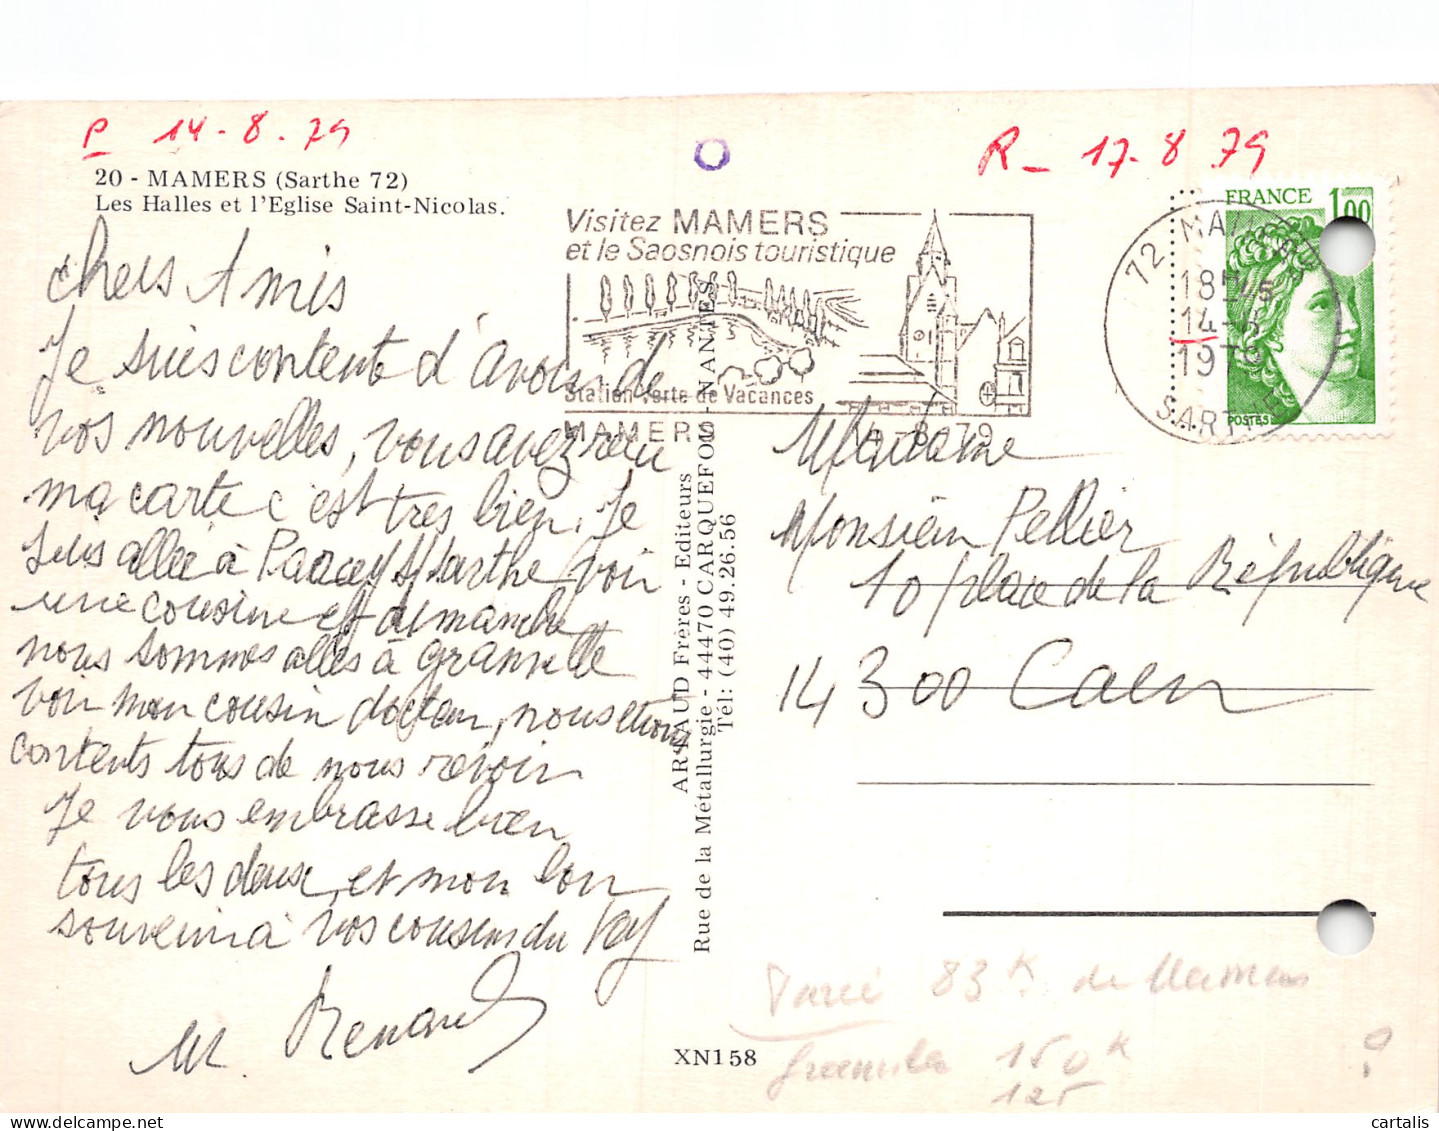 P 14-8.79
R- 17-8 79
20 - MAMERS (Sarthe 72)
Les Halles et l'Eglise Saint-Nicolas.
Visitez MAMERS
et le Saosnois touristique
Station Verte de Vacances
MAMERS 14-8-79
FRANCE 1,00
POSTES
72 MAMERS
18H15
14-8
1979
SARTHE
Chers Amis
Je suis contente d'avoir de
vos nouvelles, vous avez reçu
ma carte c'est très bien. Je
suis allée à Parcé S/Sarthe voir
une cousine et dimanche
nous sommes allés à
voir mon cousin docteur, nous étions
contents tous de nous revoir
Je vous embrasse bien
tous les deux, et mon bon
souvenir à vos cousins du
M. Renard
ARTAUD Frères - Editeurs
Rue de la Métallurgie - 44470 CARQUEFOU - NANTES
Tél: (40) 49.26.56
XN158
Madame
Monsieur Pellier
10 place de la République
14300 Caen
Parcé 83 K de Mamers
150 K
125
?
cartalis